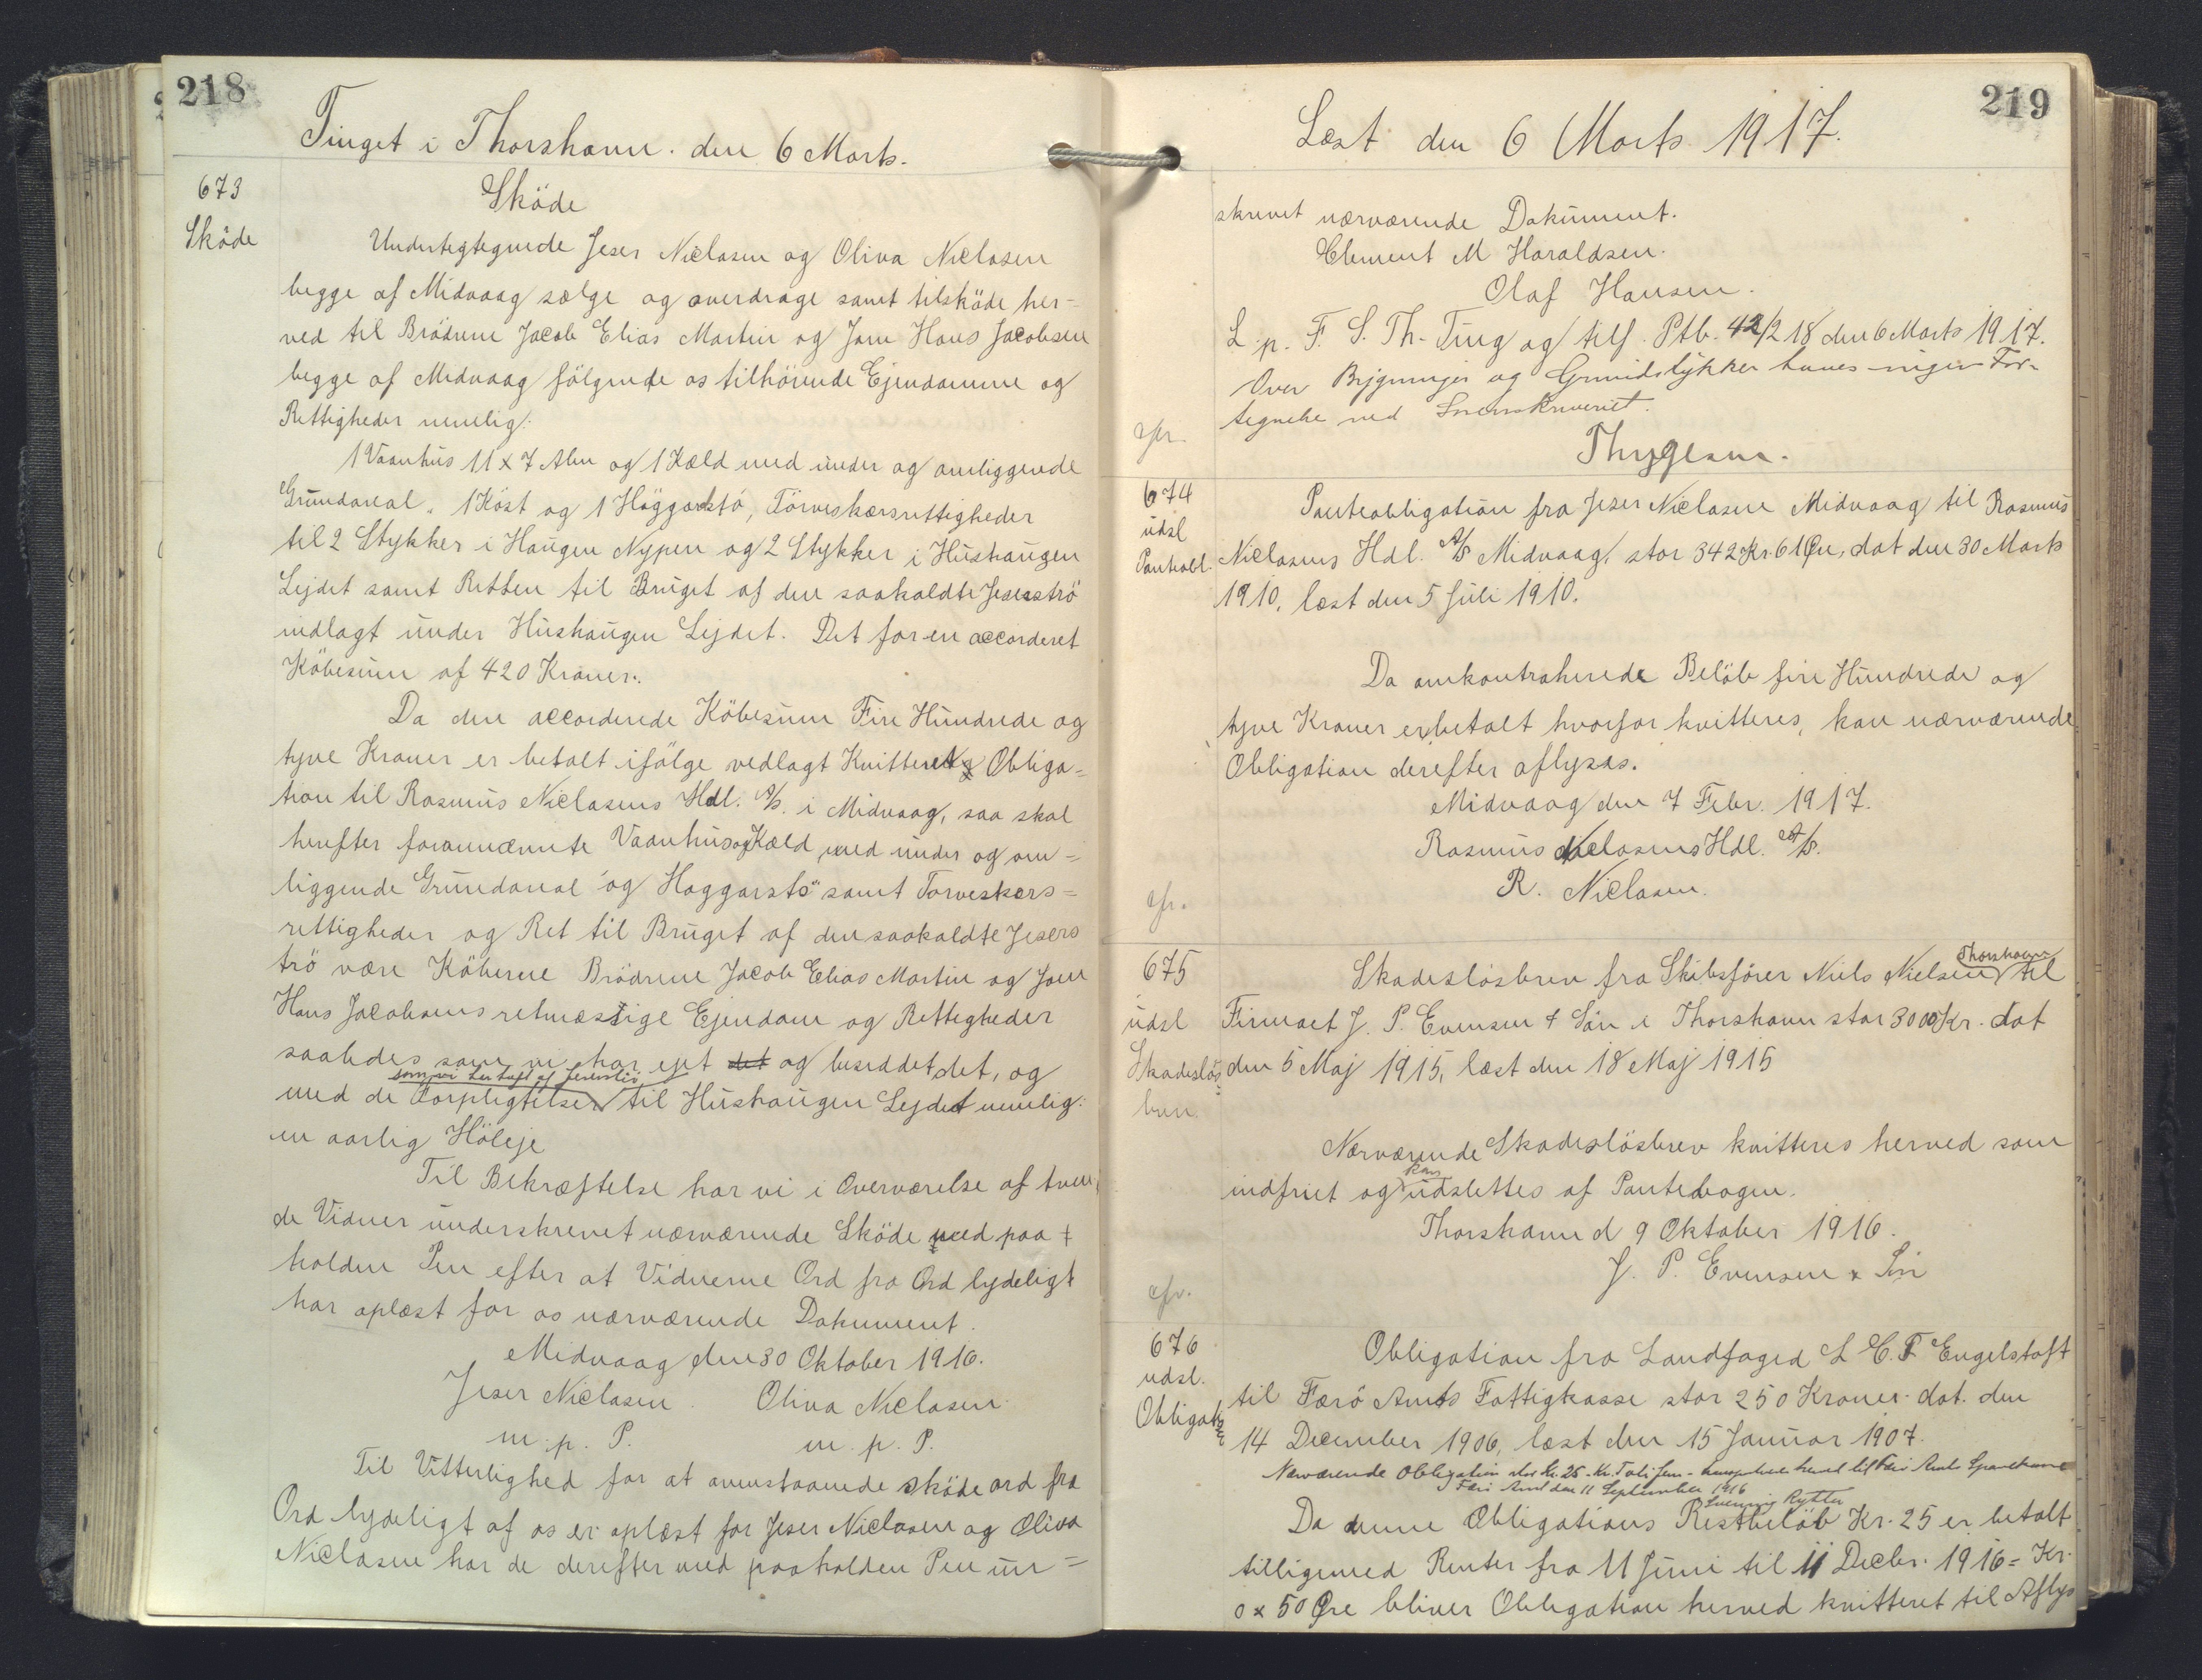 218
Tinget i Thorshavn. den 6 Marts.
673
Sköde
Sköde
Undertegtegnede Jeser Niclasen og Oliva Niclasen
begge af Midvaag sælge og overdrage samt tilsköde her=
ved til Brödrene Jacob Elias Martin og Jom Hans Jacobsen
begge af Midvaag fölgende os tilhörende Ejendomme og
Rettigheder nemelig:
1 Vaanhus 11 x 7 Alen og 1 Kæld med under og omliggende
Grundareal. 1 Köst og 1 Höggarstó, Törveskærsrettigheder
til 2 Stykker i Haugen Nypen og 2 Stykker i Hushaugen
Lejdet samt Retten til Bruget af den saakaldte Jesersströ
indlagt under Hushaugen Lejdet. Det for en accorderet
Köbesum af 420 Kroner.
Da den accorderede Köbesum Fire Hundrede og
tyve Kroner er betalt ifölge vedlagt Kvitteret Obliga=
tion til Rasmus Niclasens Hdl. A/S. i Midvaag, saa skal
herefter forannævnte Vaanhus og Kæld med under og om=
liggende Grundareal og Haggarsto samt Torveskærs=
rettigheder og Ret til Bruget af den saakaldte Jesers
trö være Köberne Brödrene Jacob Elias Martin og Jom
Hans Jacobsens retmæssige Ejendom og Rettigheder
saaledes som vi har ejet det og besiddet det, og
som vi har haft af
med de Forpligtelser til Hushaugen Lejdet nemlig:
en aarlig Höleje
Til Bekræftelse har vi i Overværelse af tven
de Vidner underskrevet nærværende Sköde med paa
holden Pen efter at Vidnerne Ord fra Ord lydeligt
har oplæst for os nærværende Dokument.
Midvaag den 30 Oktober 1916.
Jeser Niclasen. Oliva Niclasen.
m. p. P. m. p. P.
Til Vitterlighed for at ovenstaaende sköde ord fra
Ord lydeligt af os er oplæst for Jeser Niclasen og Oliva
Niclasen har de derefter med paaholden Pen un=
219
Læst den 6 Marts 1917.
skrevet nærværende Dokument.
Clement M Haraldsen.
Olaf Hansen.
L. p. F. S. Th. Ting og tilf. Ptb. 42/218 den 6 Marts 1917.
Over Bygninger og Grundstykker haves ingen For-
tegnelse ved Sorenskriveriet.
cfr.
Thygesen.
674
udsl
Panteobl.
Panteobligation fra Jeser Niclasen Midvaag til Rasmus
Niclasens Hdl. A/S Midvaag, stor 342 Kr. 61 Øre, dat den 30 Marts
1910, læst den 5 Juli 1910.
Da omkontraherede Belöb fire Hundrede og
tyve Kroner er betalt hvorfor kvitteres, kan nærværende
Obligation derefter aflyses.
Midvaag den 7 Febr. 1917.
Rasmus Niclasens Hdl. A/S.
R. Niclasen.
cfr.
675
udsl
Skadeslös
brev.
Skadeslösbrev fra Skibsförer Niels Nielsen Thorshavn til
Firmaet J. P. Evensen & Sön i Thorshavn stor 3000 Kr. dat
den 5 Maj 1915, læst den 18 Maj 1915
Nærværende Skadeslösbrev kvitteres herved som
indfriet og kan udslettes af Pantebogen.
Thorshavn d 9 Oktober 1916.
J. P. Evensen & Sön
cfr.
676
udsl.
Obligation
Obligation fra Landfoged L C. F Engelstoft
til Færö Amts Fattigkasse stor 250 Kroner dat. den
14 December 1906, læst den 15 Januar 1907.
Nærværende Obligation stor Kr. 25 - Kr. Toti fem - herved til Færö Amts Sparekasse
Færö Amt den 11 September 1916
Svenning Rytter
Da denne Obligations Restbelöb Kr. 25 er betalt
tilligemed Renter fra 11 Juni til 11 Decbr. 1916 = Kr.
0 x 50 Øre bliver Obligation herved kvitteret til Aflys